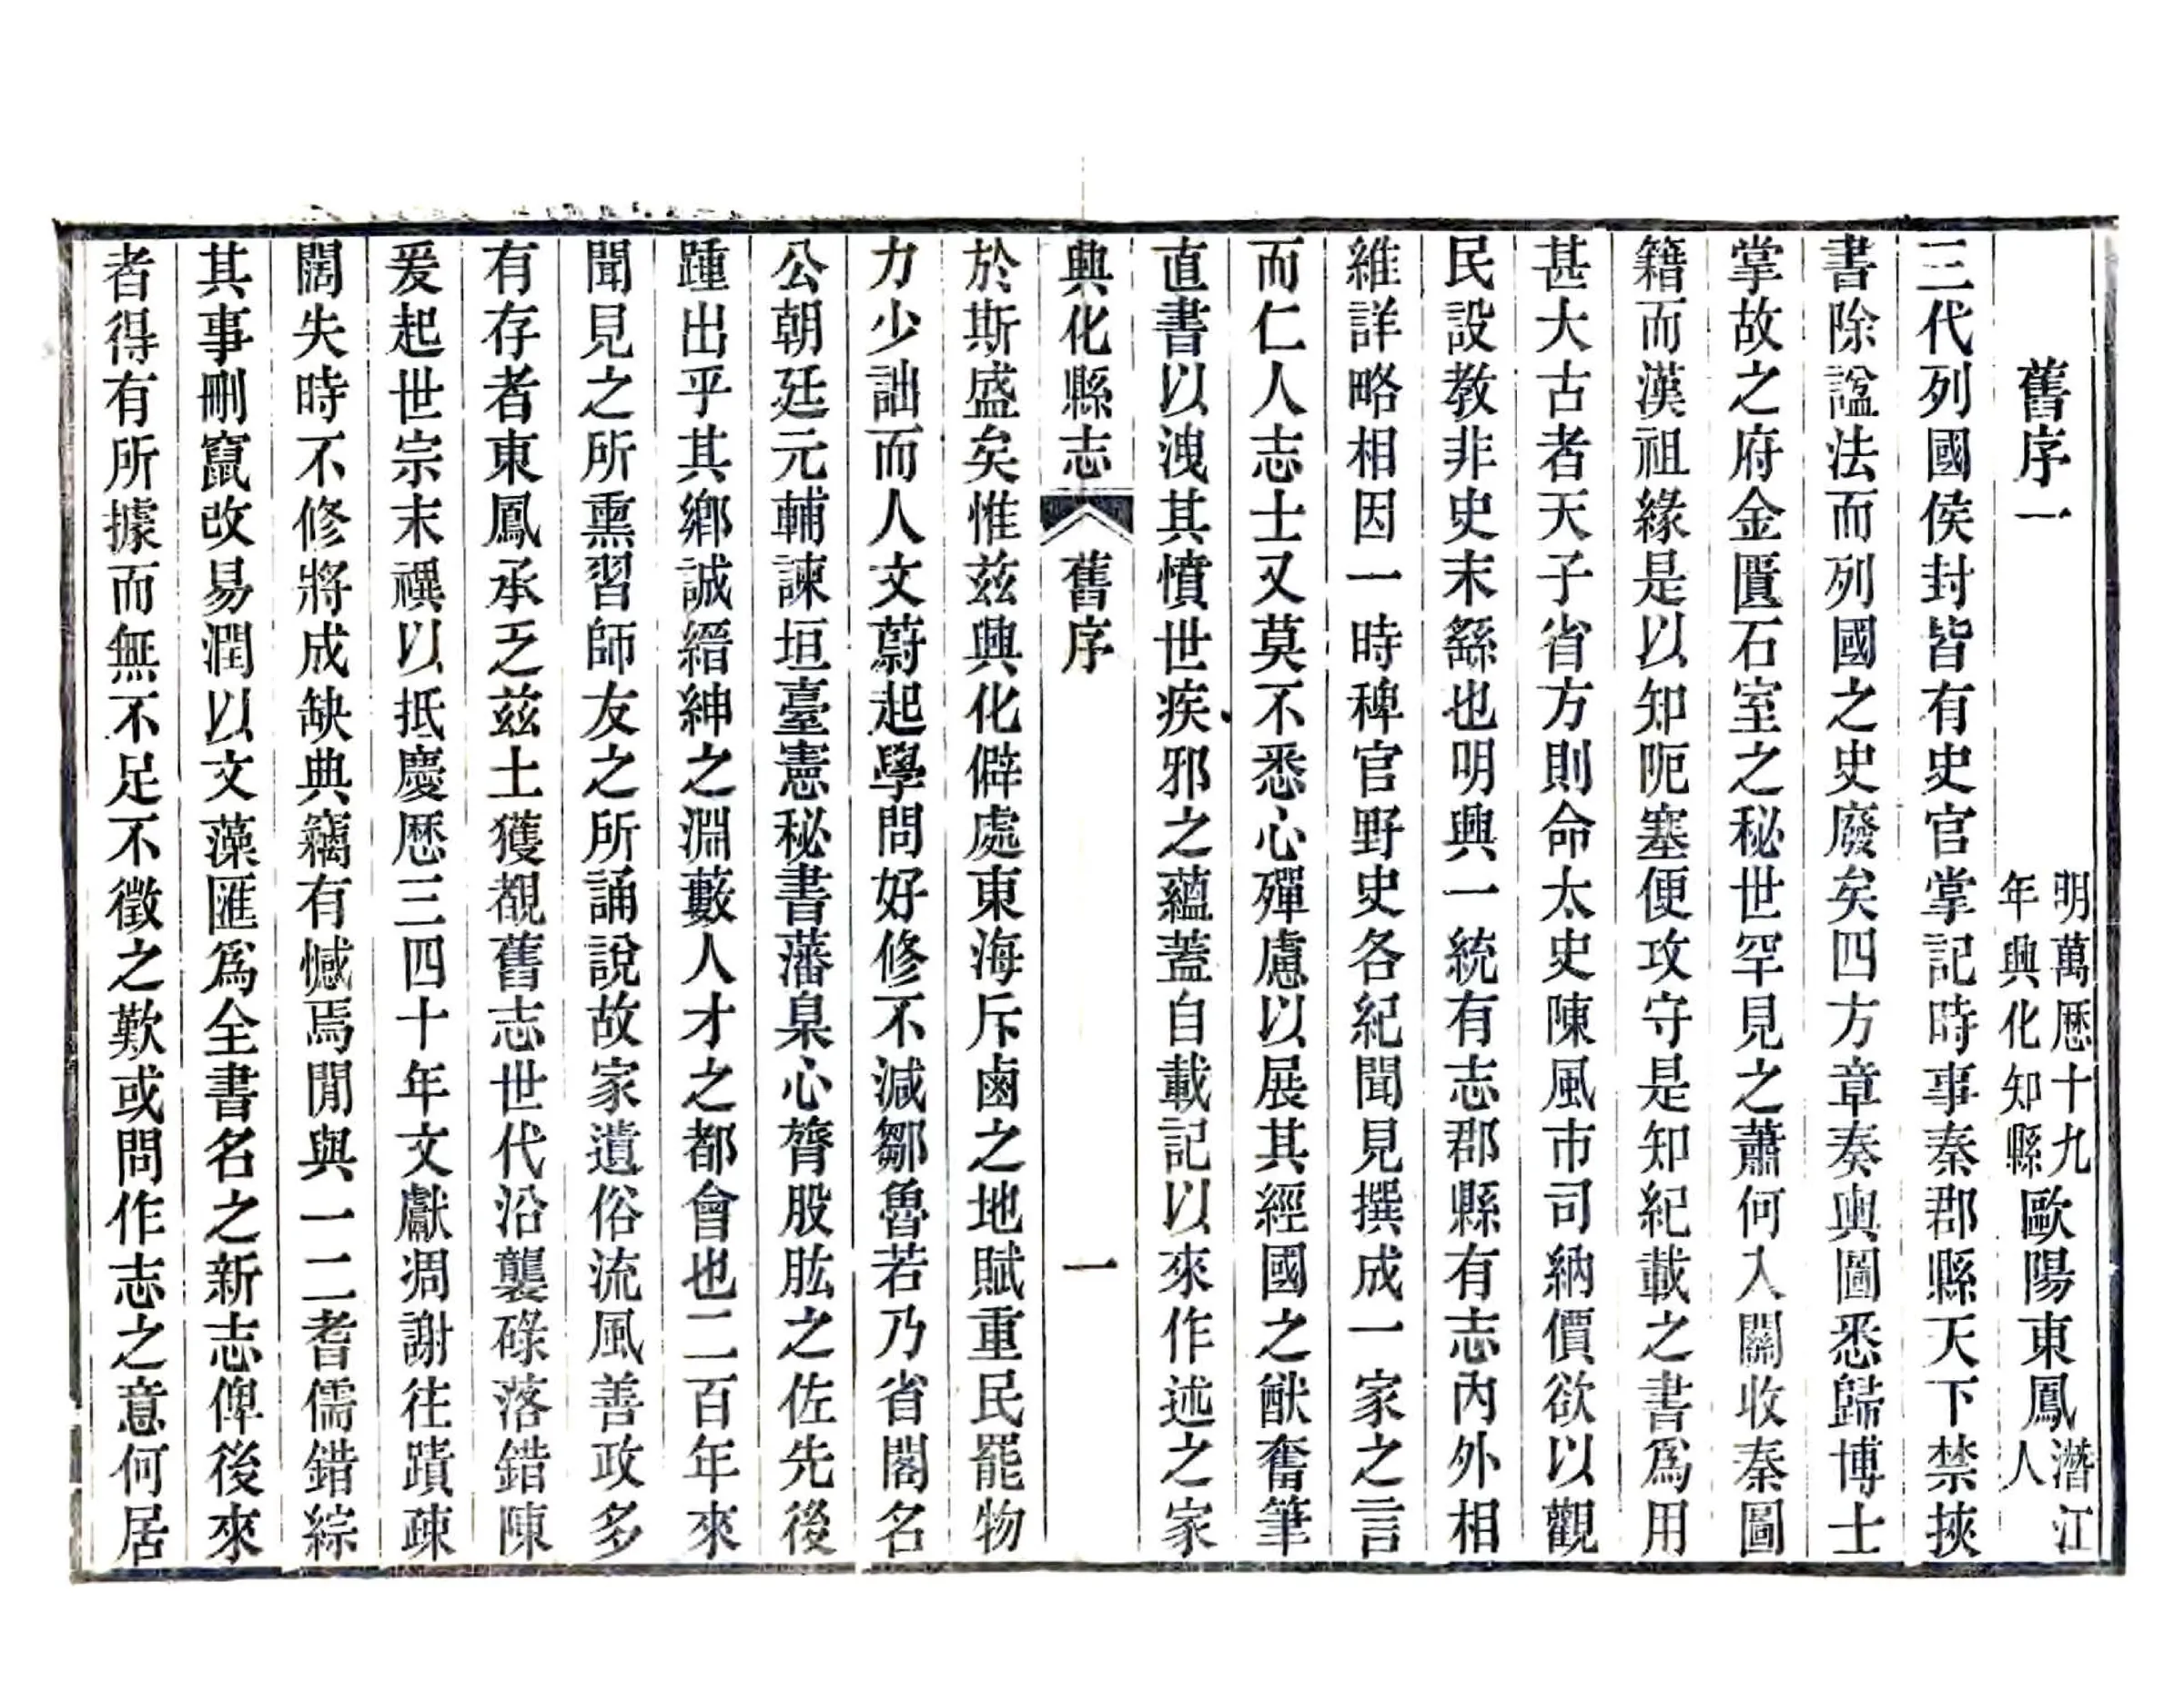 舊序一 明萬歷十九年興化知縣歐陽東鳳潛江人
三代列國侯封皆有史官掌記時事秦郡縣天下禁挾
書除諡法而列國之史廢矣四方章奏輿圖悉歸博士
掌故之府金匱石室之秘世罕見之蕭何入關收秦圖
籍而漢祖緣是以知阨塞便攻守是知紀載之書爲用
甚大古者天子省方則命太史陳風市司納價欲以觀
民設教非史末繇也明興一統有志郡縣有志內外相
維詳略相因一時稗官野史各紀聞見撰成一家之言
而仁人志士又莫不悉心殫慮以展其經國之猷奮筆
直書以洩其憤世疾邪之蘊蓋自載記以來作述之家
興化縣志 舊序 一
於斯盛矣惟兹興化僻處東海斥鹵之地賦重民罷物
力少詘而人文蔚起學問好修不減鄒魯若乃省閣名
公朝廷元輔諫垣臺憲秘書藩臬心膂股肱之佐先後
踵出乎其鄉誠縉紳之淵藪人才之都會也二百年來
聞見之所熏習師友之所誦說故家遺俗流風善政多
有存者東鳳承乏兹土獲覩舊志世代沿襲碌落錯陳
爰起世宗末禩以抵慶歷三四十年文獻凋謝往蹟疎
闊失時不修將成缺典竊有憾焉閒與一二耆儒錯綜
其事刪竄改易潤以文藻匯爲全書名之新志俾後來
者得有所據而無不足不徵之歎或問作志之意何居